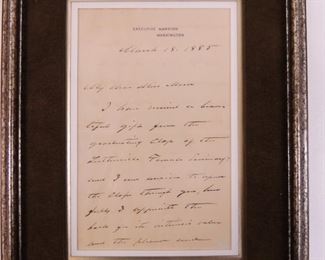 EXECUTIVE MANSION
WASHINGTON
March 18, 1885
My Dear Miss
I have received a beau-
tiful gift from the
graduating Class of the
Lutherville Female Seminary,
and I am anxious to assure
the Class through you, how
fully I appreciate the
book for its intrinsic value
and the pleasant and